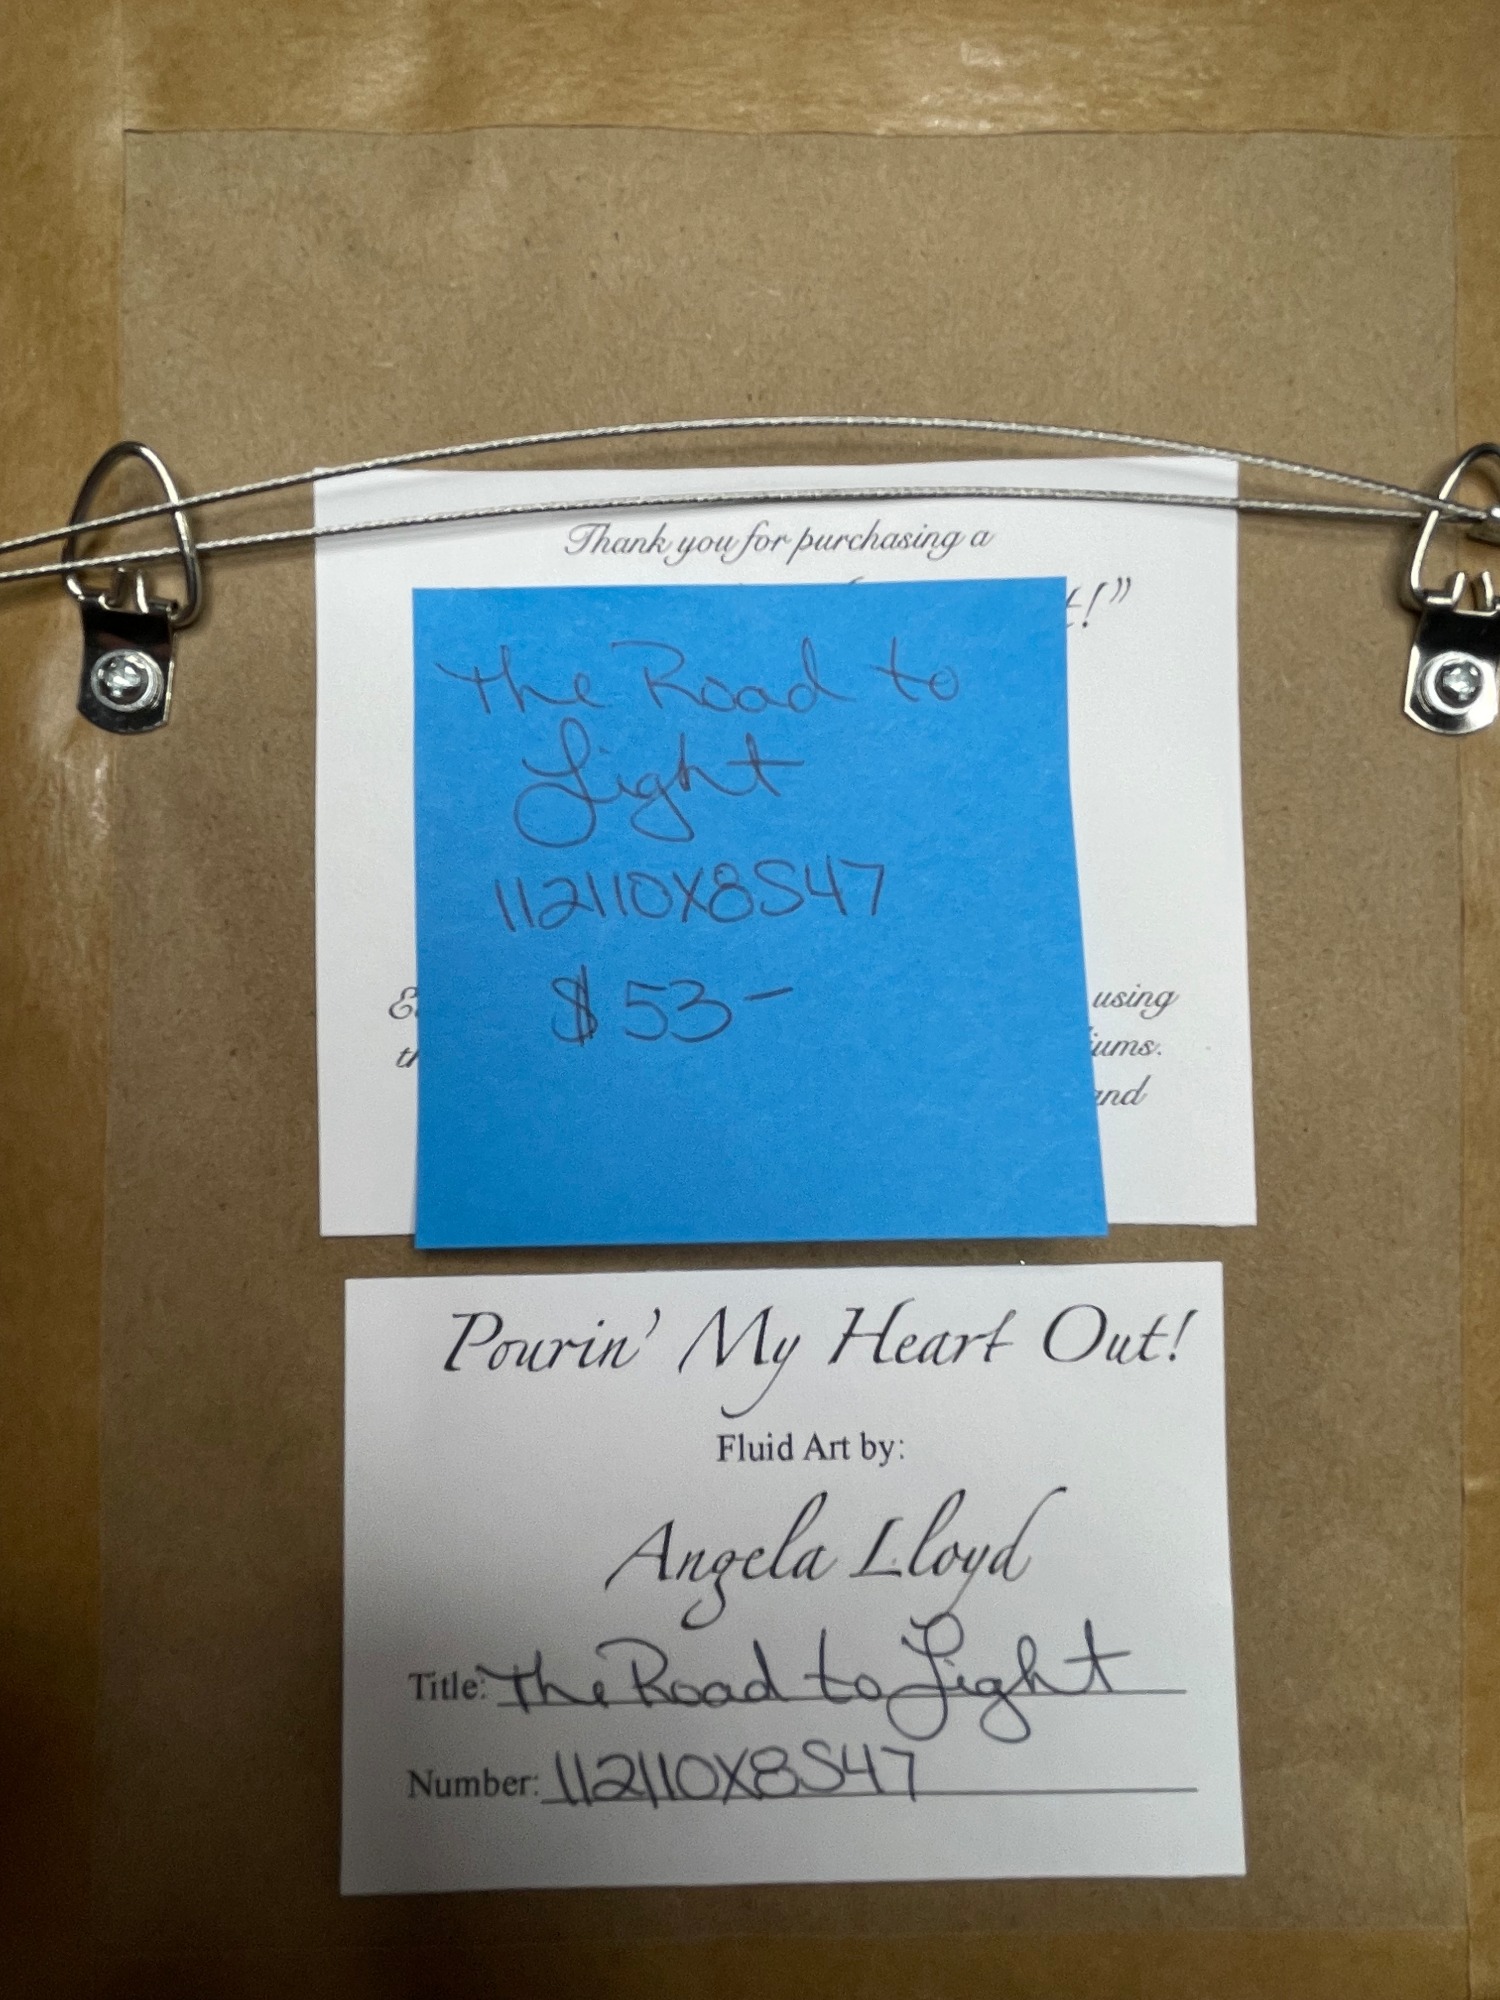 Thank you for purchasing a
!”
The Road to
Light
112110X8S47
$53-
using
and
Pourin' My Heart Out!
Fluid Art by:
Angela Lloyd
Title: The Road to Light
Number: 112110X8S47